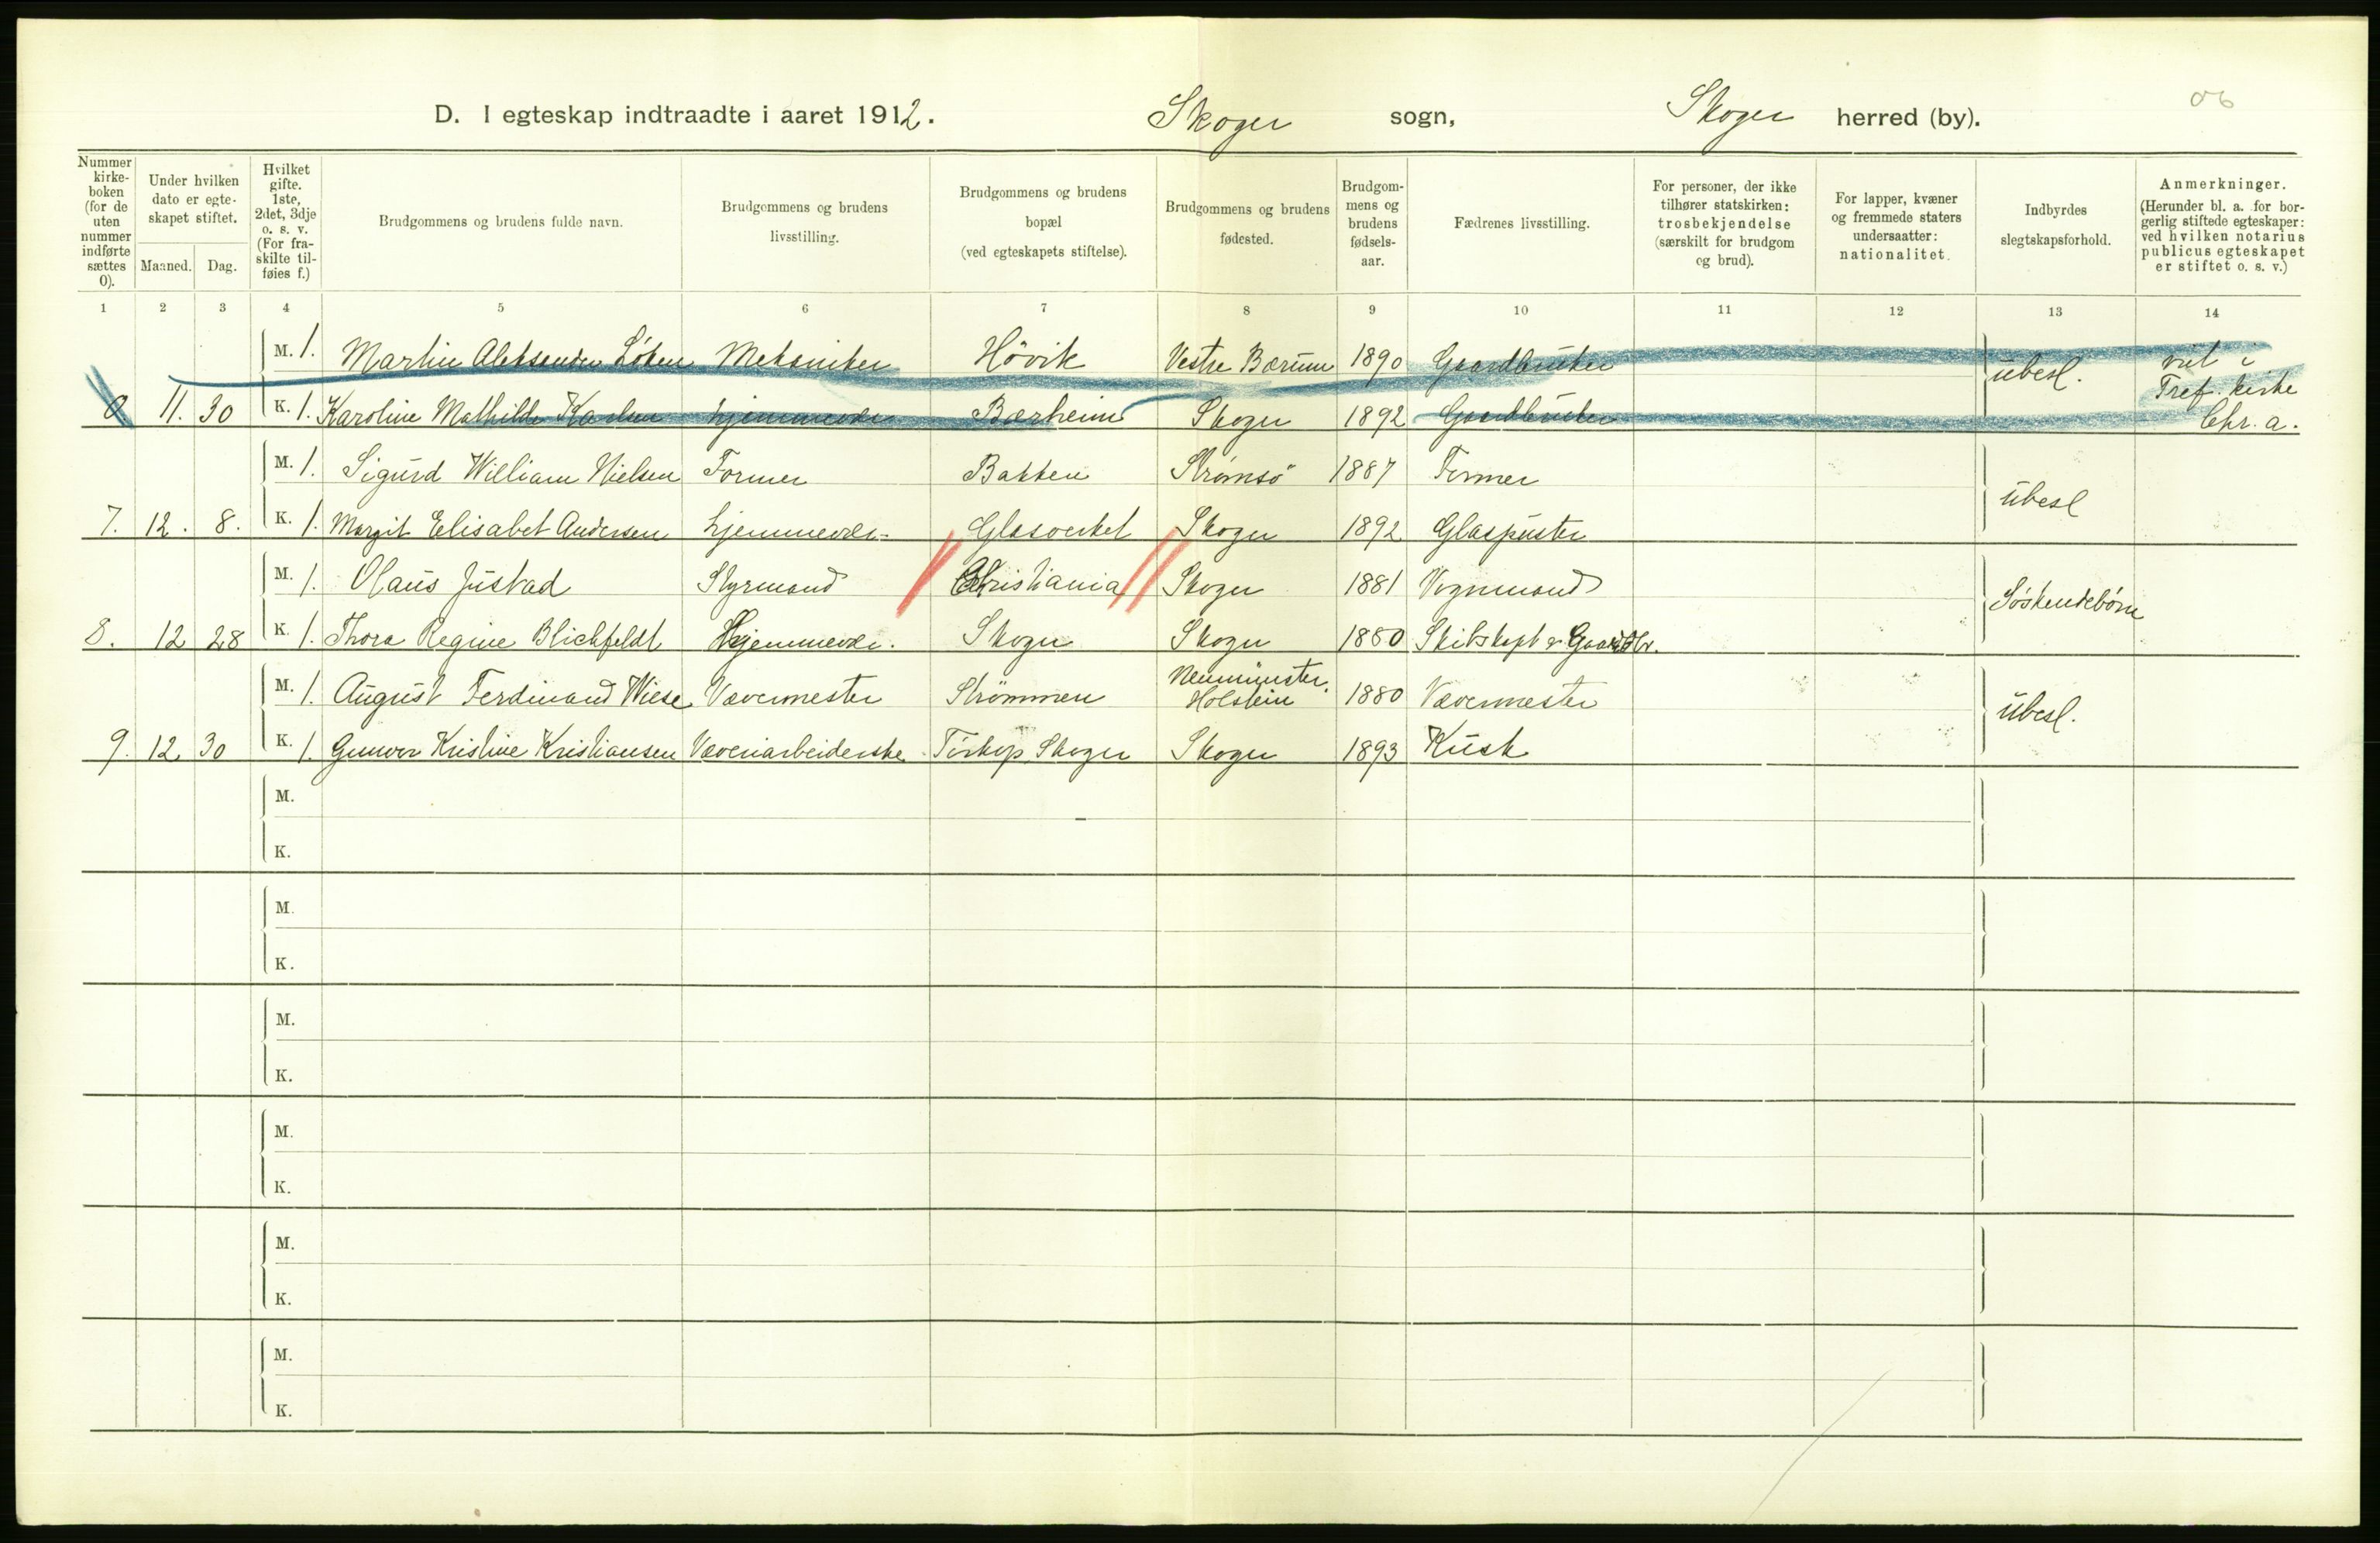 D. I egteskap indtraadte i aaret 1912. Skoger sogn, Skoger herred (by).
Nummer kirke-boken (for de uten nummer indførte sættes 0).
Under hvilken dato er egte-skapet stiftet.
Maaned. Dag.
Hvilket gifte. 1ste, 2det, 3dje o. s. v. (For fra-skilte til-føies f.)
Brudgommens og brudens fulde navn.
Brudgommens og brudens livsstilling.
Brudgommens og brudens bopæl (ved egteskapets stiftelse).
Brudgommens og brudens fødested.
Brudgom-mens og brudens fødsels-aar.
Fædrenes livsstilling.
For personer, der ikke tilhører statskirken: trosbekjendelse (særskilt for brudgom og brud).
For lapper, kvæner og fremmede staters undersaatter: nationalitet.
Indbyrdes slegtskapsforhold.
Anmerkninger. (Herunder bl. a. for bor-gerlig stiftede egteskaper: ved hvilken notarius publicus egteskapet er stiftet o. s. v.)
1 2 3 4 5 6 7 8 9 10 11 12 13 14
M. 1. Martin Aleksander Løken Mekaniker Høvik Vestre Bærum 1890 Gaardbruker ubesl. viet i Tref. kirke Chr.a.
0 11. 30 K. 1. Karoline Mathilde Karlsen hjemmevær. Bærheim Skoger 1892 Gaardbruker
M. 1. Sigurd William Nielsen Former Bakken Strømsö 1887 Former ubesl
7. 12. 8. K. 1. Margit Elisabet Andersen hjemmevær. Glasverket Skoger 1892 Glaspuster
M. 1. Olaus Justad Styrmand Christiania Skoger 1881 Vognmand Søskendebørn
8. 12 28 K. 1. Thora Regine Blichfeldt Hjemmevær. Skoger Skoger 1880 Skibskapt & Gaardbr.
M. 1. August Ferdinand Wiese Vævermester Strømmen Neumünster, Holstein 1880 Vævermester ubesl.
9. 12. 30 K. 1. Gunvor Kristine Kristiansen Væveriarbeiderske Skoger Skoger 1893 Kusk
M.
K.
M.
K.
M.
K.
M.
K.
M.
K.
M.
K.